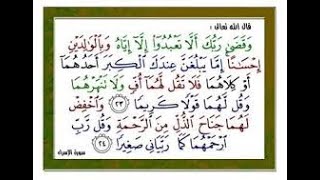 قال الله تعالى :
وَقَضَىٰ رَبُّكَ أَلَّا تَعْبُدُوٓا۟ إِلَّآ إِيَّاهُ وَبِٱلْوَٰلِدَيْنِ
إِحْسَٰنًا إِمَّا يَبْلُغَنَّ عِندَكَ ٱلْكِبَرَ أَحَدُهُمَآ
أَوْ كِلَاهُمَا فَلَا تَقُل لَّهُمَآ أُفٍّ وَلَا تَنْهَرْهُمَا
وَقُل لَّهُمَا قَوْلًا كَرِيمًا ٢٣ وَٱخْفِضْ
لَهُمَا جَنَاحَ ٱلذُّلِّ مِنَ ٱلرَّحْمَةِ وَقُل رَّبِّ
ٱرْحَمْهُمَا كَمَا رَبَّيَانِى صَغِيرًا ٢٤
سورة الإسراء